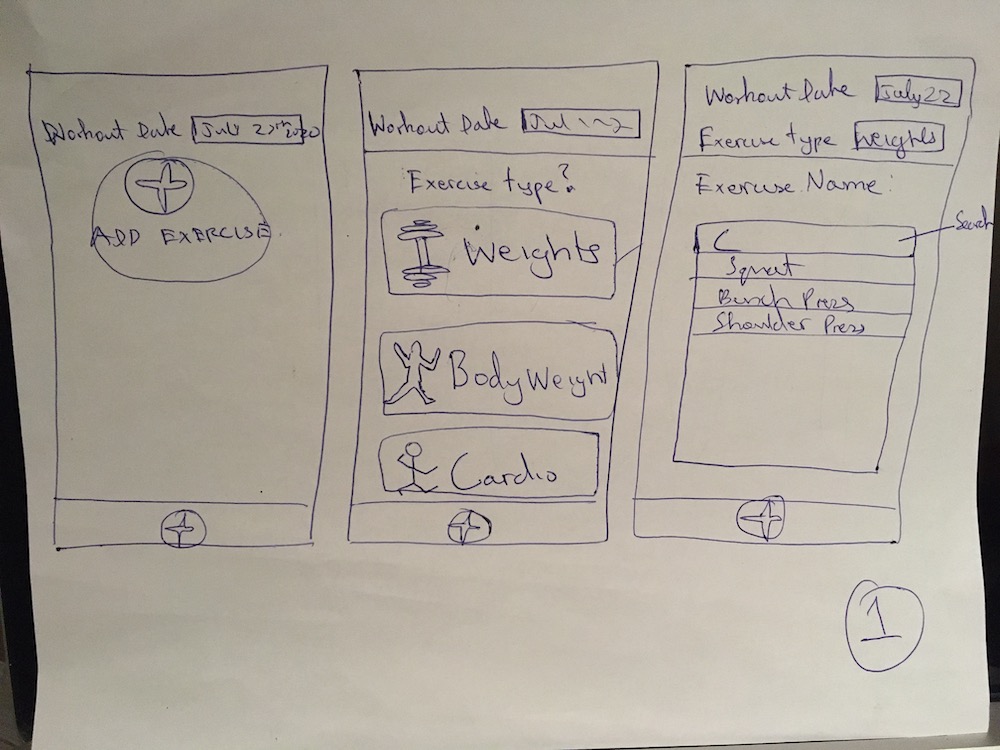 Workout Date July 22th 2020
ADD EXERCISE
Workout Date
Exercise type?
Weights
BodyWeight
Cardio
Workout Date July 22
Exercise type Weights
Exercise Name:
Search
Squat
Bench Press
Shoulder Press
1